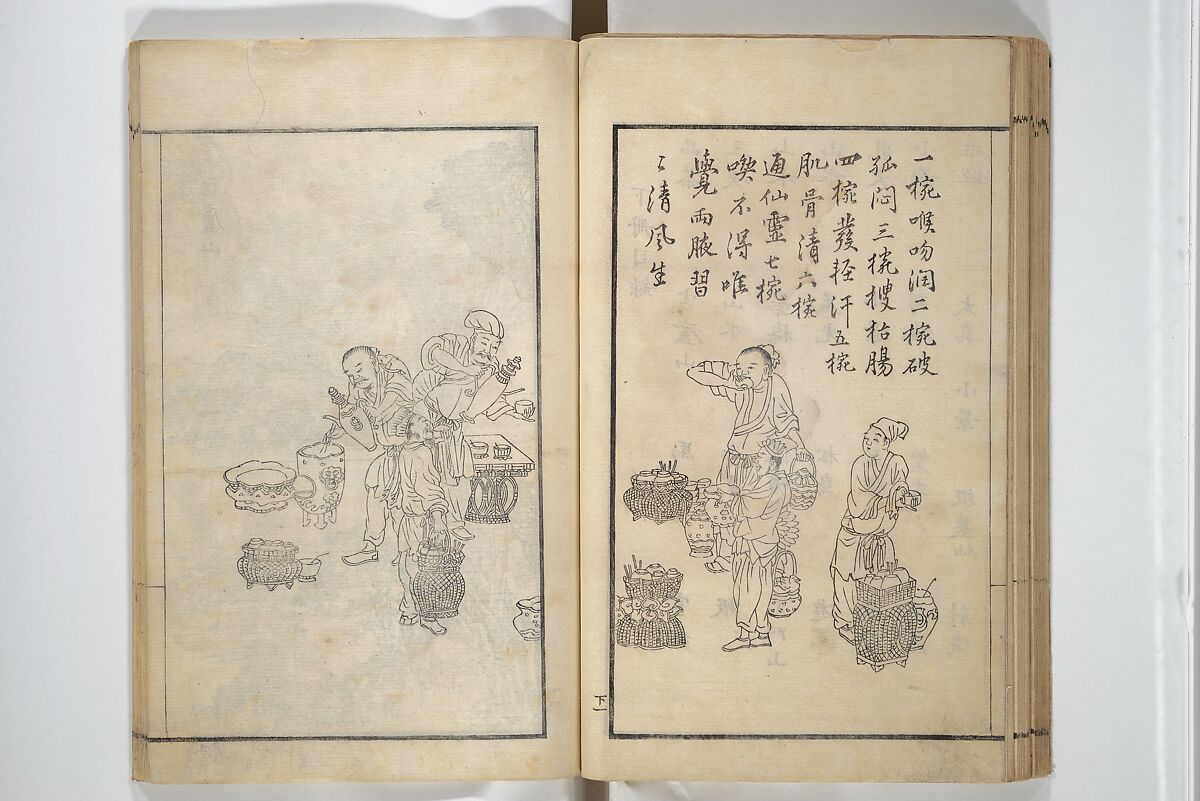 一椀喉吻润二椀破
孤闷三椀搜枯腸
四椀發軽汗五椀
肌骨清六椀
通仙靈七椀
喫不得唯
覺兩腋習
〻清風生
下一